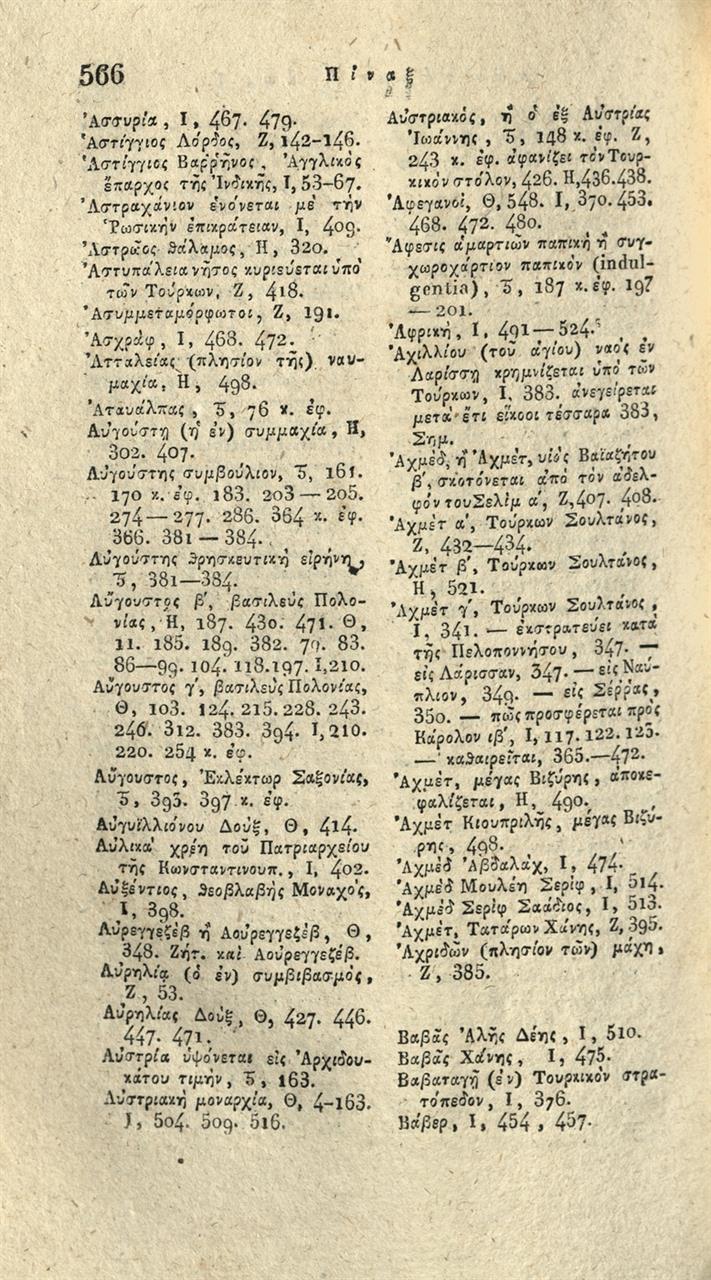 566
Πίναξ
Ἀσσυρία, Ι, 467. 479.
Ἁστίγγιος Λόρδος, Ζ, 142-146.
Ἁστίγγιος Βαῤῥῆνος, Ἀγγλικὸς
ἔπαρχος τῆς Ἰνδικῆς, Ι, 53-67.
Ἀστραχάνιον ἑνόνεται μὲ τὴν
Ῥωσικὴν ἐπικράτειαν, Ι, 409.
Ἀστρῶος θάλαμος, Η, 320.
Ἀστυπάλεια νῆσος κυριεύεται ὑπὸ
τῶν Τούρκων, Ζ, 418.
Ἀσυμμεταμόρφωτοι, Ζ, 191.
Ἀσχράφ, Ι, 468. 472.
Ἀτταλείας (πλησίον τῆς) ναυ-
μαχία, Η, 498.
Ἀταυάλπας, Ϛ, 76 κ. ἐφ.
Αὐγούστῃ (ἡ ἐν) συμμαχία, Η,
302. 407.
Αὐγούστης συμβούλιον, Ϛ, 161.
170 κ. ἐφ. 183. 203 — 205.
274 — 277. 286. 364 κ. ἐφ.
366. 381 — 384.
Αὐγούστης θρησκευτικὴ εἰρήνη,
Ϛ, 381—384.
Αὔγουστος β', βασιλεὺς Πολο-
νίας, Η, 187. 430. 471. Θ,
11. 185. 189. 382. 79. 83.
86—99. 104. 118. 197. Ι, 210.
Αὔγουστος γ', βασιλεὺς Πολονίας,
Θ, 103. 124. 215. 228. 243.
246. 312. 383. 394. Ι, 210.
220. 254 κ. ἐφ.
Αὔγουστος, Ἐκλέκτωρ Σαξονίας,
Ϛ, 393. 397 κ. ἐφ.
Αὐγυϊλλιόνου Δοὺξ, Θ, 414.
Αὐλικὰ χρέη τοῦ Πατριαρχείου
τῆς Κωνσταντινουπ., Ι, 402.
Αὐξέντιος, θεοβλαβὴς Μοναχὸς,
Ι, 398.
Αὐρεγγεζὲβ ἢ Αουρεγγεζὲβ, Θ,
348. Ζήτ. καὶ Αουρεγγεζέβ.
Αὐρηλίᾳ (ὁ ἐν) συμβιβασμὸς,
Ζ, 53.
Αὐρηλίας Δοὺξ, Θ, 427. 446.
447. 471.
Αὐστρία ὑψόνεται εἰς Ἀρχιδου-
κάτου τιμὴν, Ϛ, 163.
Αὐστριακὴ μοναρχία, Θ, 4-163.
Ι, 504. 509. 516.
Αὐστριακὸς, ἢ ὁ ἐξ Αὐστρίας
Ἰωάννης, Ϛ, 148 κ. ἐφ. Ζ,
243 κ. ἐφ. ἀφανίζει τὸν Τουρ-
κικὸν στόλον, 426. Η, 436. 438.
Ἀφεγανοὶ, Θ, 548. Ι, 370. 453.
468. 472. 480.
Ἄφεσις ἁμαρτιῶν παπικὴ ἢ συγ-
χωροχάρτιον παπικὸν (indul-
gentia), Ϛ, 187 κ. ἐφ. 197
— 201.
Ἀφρικὴ, Ι, 491 — 524.
Ἀχιλλίου (τοῦ ἁγίου) ναὸς ἐν
Λαρίσσῃ κρημνίζεται ὑπὸ τῶν
Τούρκων, Ι, 383. ἀνεγείρεται
μετὰ ἔτι εἴκοσι τέσσαρα 383,
Σημ.
Ἀχμὲδ, ἢ Ἀχμὲτ, υἱὸς Βαϊαζήτου
β', σκοτόνεται ἀπὸ τὸν ἀδελ-
φόν του Σελὶμ α', Ζ, 407. 408.
Ἀχμὲτ α', Τούρκων Σουλτάνος,
Ζ, 432—434.
Ἀχμὲτ β', Τούρκων Σουλτάνος,
Η, 521.
Ἀχμὲτ γ', Τούρκων Σουλτάνος,
Ι, 341. — ἐκστρατεύει κατὰ
τῆς Πελοποννήσου, 347. —
εἰς Λάρισσαν, 347. — εἰς Ναύ-
πλιον, 349. — εἰς Σέῤῥας,
350. — πῶς προσφέρεται πρὸς
Κάρολον ιβ', Ι, 117. 122. 123.
— καθαιρεῖται, 365. — 472.
Ἀχμὲτ, μέγας Βιζύρης, ἀποκε-
φαλίζεται, Η, 490.
Ἀχμὲτ Κιουπριλῆς, μέγας Βιζύ-
ρης, 498.
Ἀχμὲδ Ἀβδαλὰχ, Ι, 474.
Ἀχμὲδ Μουλέη Σερὶφ, Ι, 514.
Ἀχμὲδ Σερὶφ Σαάδιος, Ι, 513.
Ἀχμὲτ, Τατάρων Χάνης, Ζ, 395.
Ἀχριδῶν (πλησίον τῶν) μάχη,
Ζ, 385.
Βαβᾶς Ἀλῆς Δέης, Ι, 510.
Βαβᾶς Χάνης, Ι, 475.
Βαβαταγῇ (ἐν) Τουρκικὸν στρα-
τόπεδον, Ι, 376.
Βάβερ, Ι, 454, 457.